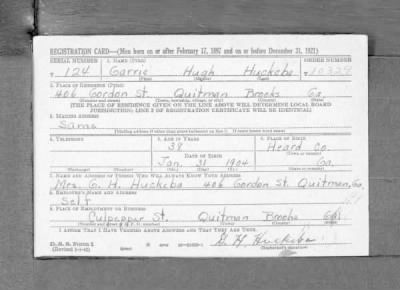 REGISTRATION CARD—(Men born on or after February 17, 1897 and on or before December 31, 1921)
SERIAL NUMBER 1. NAME (Print) ORDER NUMBER
T 124 Garrie Hugh Huckeba T 10329
(First) (Middle) (Last)
2. PLACE OF RESIDENCE (Print)
406 Gordon St. Quitman Brooks Ga.
(Number and street) (Town, township, village, or city) (County) (State)
[THE PLACE OF RESIDENCE GIVEN ON THE LINE ABOVE WILL DETERMINE LOCAL BOARD
JURISDICTION; LINE 2 OF REGISTRATION CERTIFICATE WILL BE IDENTICAL]
3. MAILING ADDRESS
Same
[Mailing address if other than place indicated on line 2. If same insert word same]
4. TELEPHONE 5. AGE IN YEARS 6. PLACE OF BIRTH
38 Heard Co.
DATE OF BIRTH (Town or county)
Jan. 31 1904 Ga.
(Mo.) (Day) (Yr.) (State or country)
7. NAME AND ADDRESS OF PERSON WHO WILL ALWAYS KNOW YOUR ADDRESS
Mrs. G. H. Huckeba 406 Gordon St. Quitman, Ga.
8. EMPLOYER'S NAME AND ADDRESS
Self
9. PLACE OF EMPLOYMENT OR BUSINESS
Culpepper St. Quitman Brooks Ga.
(Number and street or R. F. D. number) (Town) (County) (State)
I AFFIRM THAT I HAVE VERIFIED ABOVE ANSWERS AND THAT THEY ARE TRUE.
D. S. S. Form 1
(Revised 1-1-42) G. H. Huckeba
(Registrant's signature)